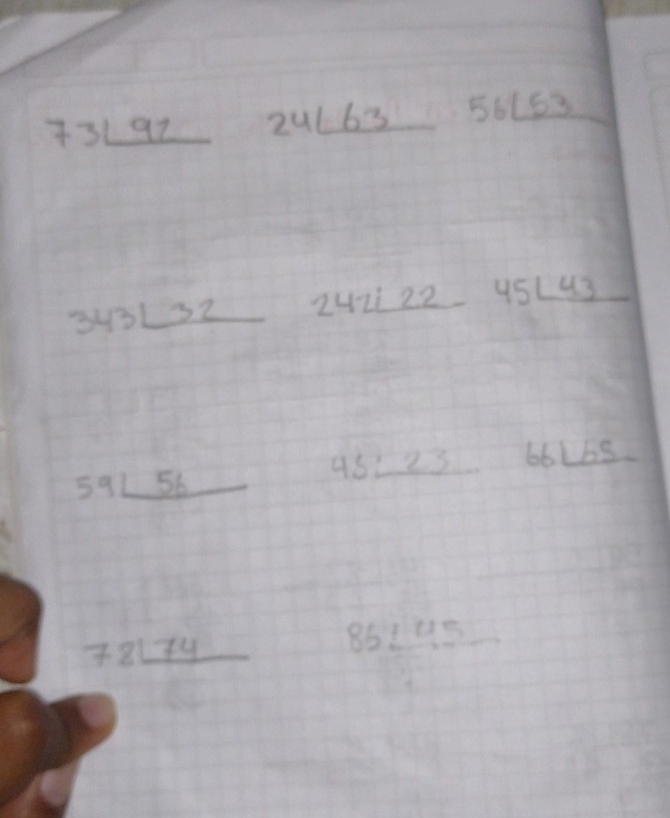 73 92 24 63 56 53
343 32 242 22 45 43
59 56 45 23 66 65
78 74 86 45